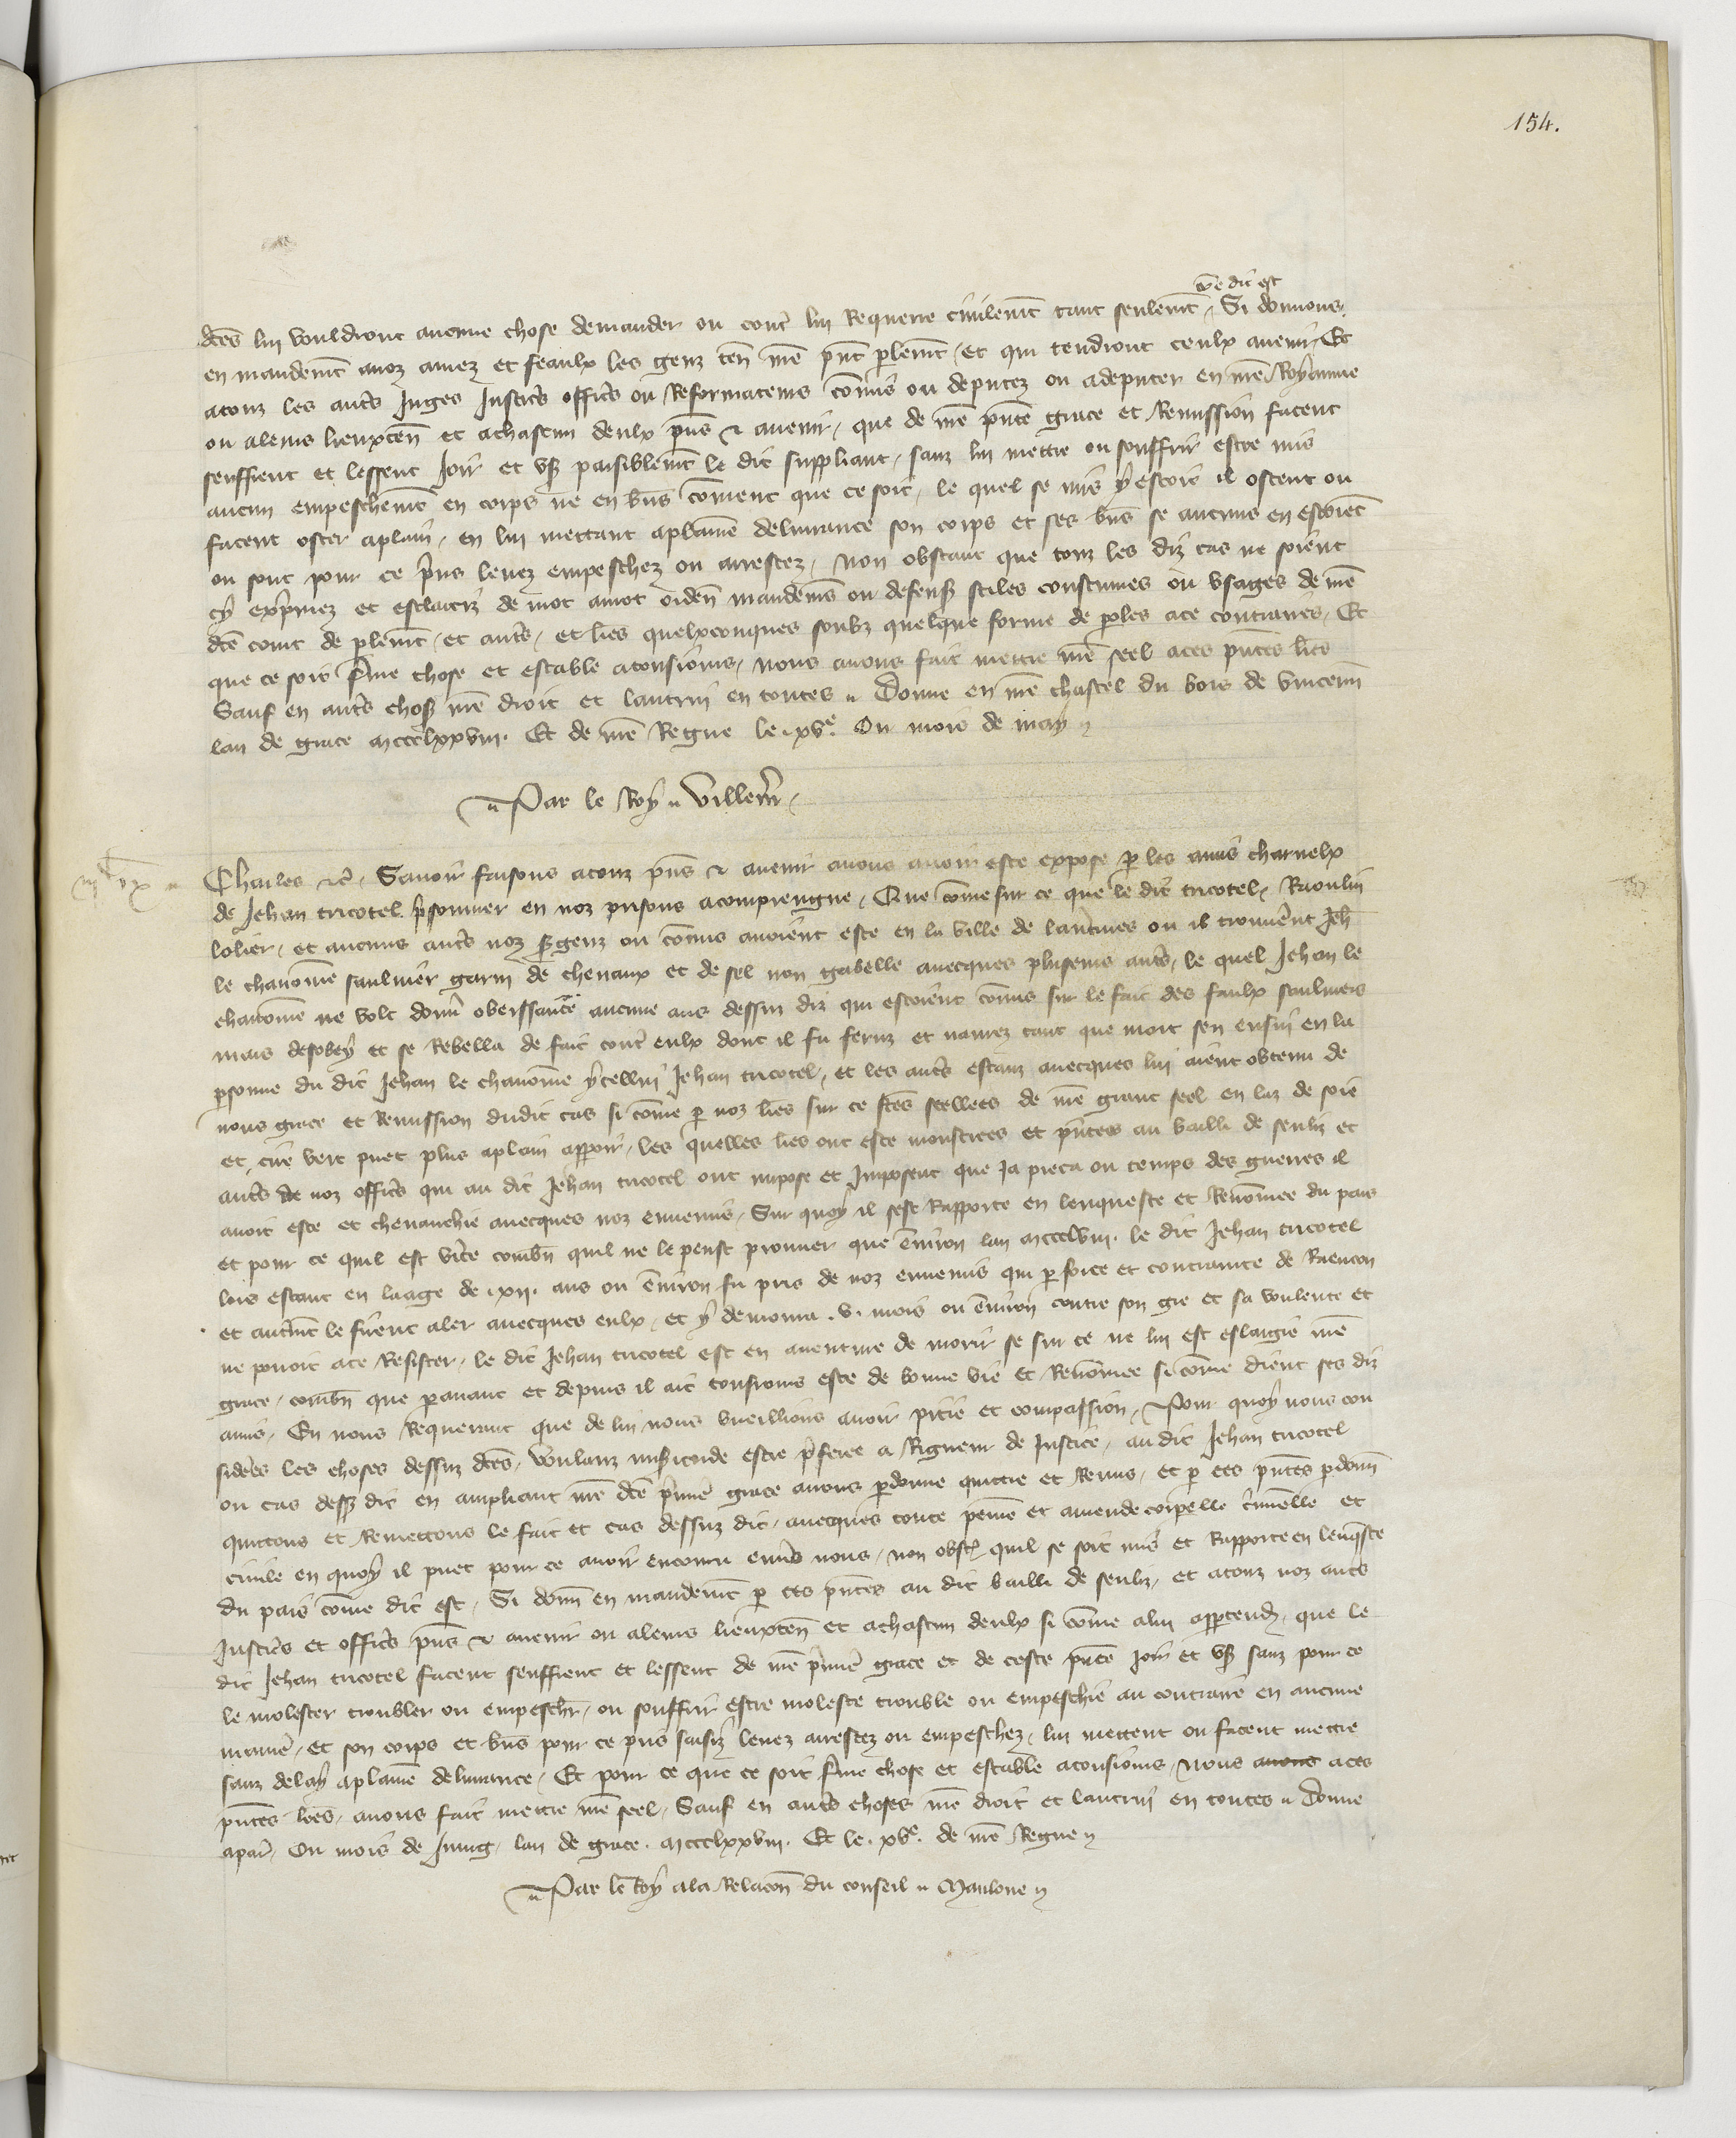 154.
cõe dit est
dc̃es lui vouldront aucune chose demander ou cont̾ lui Requerre ciuilemẽt tant seulemẽt / Si donnons
en mandemẽt anoz amez et feaulx les genz ten̄ nr̃e pn̄t plemẽt / et qui tendront ceulx auenir / Et
atouz les aut̾s Juges Justic̾s offic̾s ou Reformateurs cõmis ou deputez ou adeputer en nr̃e Royaume
ou aleurs lieuxten̄ et achascun deulx pñs & auenir / que de nr̃e pñte grace et Remission facent
seuffrent et lessent Joir et vs̾ paisiblemẽt le dit suppliant / sanz lui mettre ou souffrir estre mis
aucun empeschemẽt en corps ne en biẽs cõment que ce soit / le quel se mis y estoit il ostent ou
facent oster aplain / en lui mettant aplaine deliurance son corps et ses biẽs se aucuns en estoiẽt
ou sont pour ce p̃ns leuez empeschez ou arrestez / Non obstant que touz les diz cas ne soient
cy exp̃mez et esclarciz de mot amot orden̄ mandemẽs ou defens̾ stiles coustumes ou vsages de nr̃e
dc̃e court de plemẽt / et aut̾s / et lr̃es quelxconques soubz quelque forme de poles ace contraires / Et
que ce soit ferme chose et estable atousiours / nous auons fait mettre nr̃e seel aces pñtes lr̃es
Sauf en aut̾s chos̾ nr̃e droit et lautrui en toutes ,, Donne en nr̃e chastel du bois de vincenn̄
lan de grace mccclxxviii. Et de nr̃e Regne le .xve. Ou mois de may
,, Par le Roy ,, Villem̃ /
Charles &c̃ / Sauoir faisons atouz pñs & auenir auons auoir este expose p les amis charnelx
de Jehan tricotel prisonnier en noz prisons acompiengne / Que cõme sur ce que le dit tricotel / Raoulin
lolier / et aucuns aut̾s noz s̾genz ou cõmis auoient este en la ville de où il trouuerent Jeh̃
le chanoine saulnier garni de cheuaux et de sel non gabelle auecques plusieurs aut̾s / le quel Jehan le
chanoine ne volt donn̾ obeissance aucune aus dessuz diz qui estoient cõmis sur le fait des faulx saulniers
mais desobey et se Rebella de fait cont̾ eulx dont il fu feruz et naurez tant que mort sen ensui en la
psonne du dit Jehan le chanoine ycellui Jehan tricotel / et les aut̾s estanz auecques lui aient obtenu de
nous grace et Remission dudit cas si cõme p noz lr̃es sur ce fc̃es seellees de nr̃e grant seel en laz de soie
et cire vert puet plus aplain apparoir / les quelles lr̃es ont este monstrees et pñtees au bailli de senliz et
aut̾s de noz offic̾s qui au dit Jehan tricotel ont impose et Imposent que Ja pieca ou temps des guerres il
auoit este et cheuauchie auecques noz ennemis / Sur quoy il sest Rapporte en lenqueste et Renõmee du pais
et pour ce quil est v̾ite combñ quil ne le peust prouuer que enuiron lan mccclviii. le dit Jehan tricotel
lors estant en laage de .xii. ans ou enuiron fu pris de noz ennemis qui p force et contrainte de Raencon
et aut̾mẽt le firent aler auecques eulx / et y demoura .v. mois ou enuiron contre son gre et sa voulente et
ne pouoit ace Resister / le dit Jehan tricotel est en auenture de morir se sur ce ne lui est eslargie nr̃e
grace / combñ que parauant et depuis il ait tousiours este de bonne vie et Renõmee si cõme dient ses diz
amis / En nous Requerant que de lui nous vueillions auoir pitie et compassion / Pour quoy nous con
siderees les choses dessuz dc̃es / voulanz mis̾icorde estre p̃feree a Rigueur de Justice / au dit Jehan tricotel
ou cas dess̾ dit en ampliant nr̃e dc̃e p̃mie̾ grace auons pdonne quittie et Remis / et p ces pñtes pdonn̄
quittons et Remettons le fait et cas dessuz dit / auecques toute peine et amende corpelle c̾minelle et
ciuile en quoy il puet pour ce auoir encouru enu̾s nous / non obst̃ quil se soit mis et Rapporte en lenq̃ste
du pais cõme dit est / Si donn̄ en mandemẽt p ces pñtes au dit bailli de senliz / et atouz noz aut̾s
Justic̾s et offic̾s pñs & auenir ou aleurs lieuxten̄ et achascun deulx si cõme alui appartendra / que le
dit Jehan tricotel facent seuffrent et lessent de nr̃e p̃mie̾ grace et de ceste pñte joir et vs̾ sanz pour ce
le molester troubler ou empescher / ou souffrir estre moleste trouble ou empeschie au contraire en aucune
manie̾ / et son corps et biẽs pour ce pris saisiz leuez arrestez ou empeschez / lui mettent ou facent mettre
sanz delay aplaine deliurance / Et pour ce que ce soit ferme chose et estable atousiours / nous auons aces
pñtes lr̃es / auons fait mettre nr̃e seel / Sauf en aut̾s choses nr̃e droit et lautrui en toutes ,, Donne
aparis / Ou mois de Juing / lan de grace . mccclxxviii. Et le .xve. de nr̃e Regne
,, Par le Roy ala Relacon̄ du conseil ,, Maulone